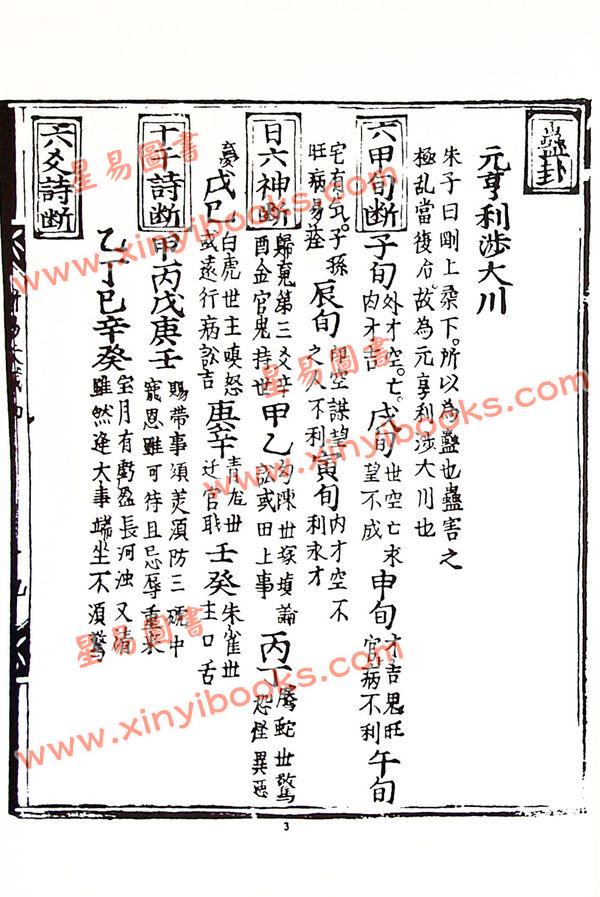 蠱卦
元亨利涉大川
朱子曰剛上柔下。所以為蠱也蠱害之
極乱當復治。故為元亨利涉大川也
六甲旬断 子旬 外才空亡。内才吉 戌旬 世空亡求望不成 申旬 才吉鬼旺官病不利 午旬
宅有气。子孫旺病易痊 辰旬 即空謀望之人不利 寅旬 内才空不利求才
日六神断 歸魂第三爻辛酉金官鬼持世 甲乙 勾陳世塚墳論訟或田上事 丙丁 騰蛇世驚恐怪異惡
憂 戊巳 白虎世主嗔怒或遠行病訟吉 庚辛 青龙世迁官職 壬癸 朱雀世主口舌
十干詩断 甲丙戊庚壬 賜帶事須美須防三褫中寵恩雖可待且忌辱重来
乙丁巳辛癸 宝月有虧盈長河浊又清雖然逢大事端坐不須驚
六爻詩断
3
星易圖書
www.xinyibooks.com
星易圖書
www.xinyibooks.com
星易圖書
www.xinyibooks.com